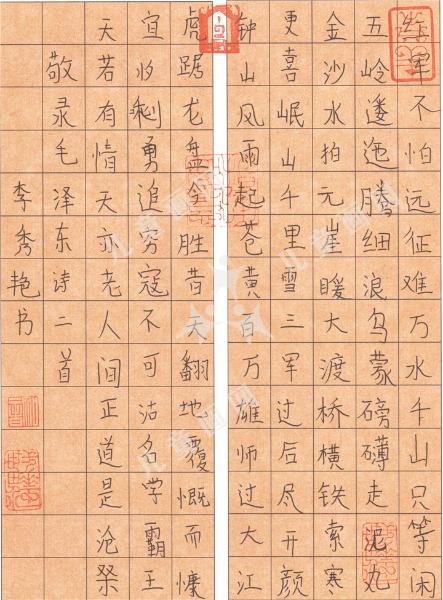 红军不怕远征难万水千山只等闲
五岭逶迤腾细浪乌蒙磅礴走泥丸
金沙水拍云崖暖大渡桥横铁索寒
更喜岷山千里雪三军过后尽开颜
钟山风雨起苍黄百万雄师过大江
虎踞龙盘今胜昔天翻地覆慨而慷
宜将剩勇追穷寇不可沽名学霸王
天若有情天亦老人间正道是沧桑
敬录毛泽东诗二首
李秀艳书